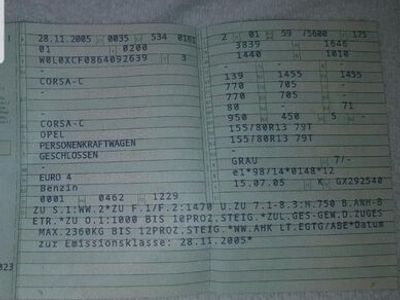 28.11.2005 0035 534 0161
01 0200
W0L0XCF0864092639 3
-
CORSA-C
-
-
CORSA-C
OPEL
PERSONENKRAFTWAGEN
GESCHLOSSEN
-
EURO 4
Benzin
0001 0462 1229
2 01 59 /5600 175
3839 1646
1440 1010
-
139 1455 1455
770 705 -
770 705 -
80 - 71
950 450 5 -
155/80R13 79T
155/80R13 79T
-
GRAU 7/-
e1*98/14*0148*12
15.07.05 K GX292540
ZU S.1:WW.2*ZU F.1/F.2:1470 U.ZU 7.1-8.3:H.750 B.ANH-B
ETR.*ZU O.1:1000 BIS 10PROZ.STEIG.*ZUL.GES-GEW.D.ZUGES
MAX.2360KG BIS 12PROZ.STEIG.*WW.AHK LT.EGTG/ABE*Datum
zur Emissionsklasse: 28.11.2005*
023